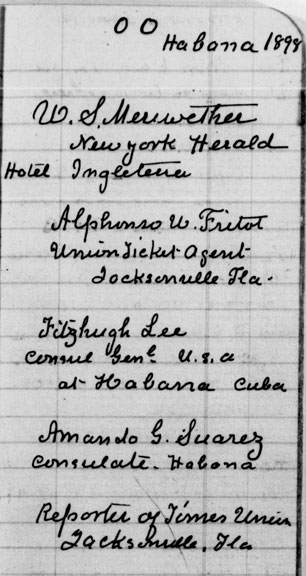 Habana 1898
W. S. Meriwether
New York Herald
Hotel Ingleterra
Alphonso W. Fritot
Union Ticket Agent
Jacksonville Fla.
Fitzhugh Lee
Consul Genl. U.S.A
at Habana Cuba
Amando G. Suarez
Consulate. Habana
Reporter of Times Union
Jacksonville, Fla